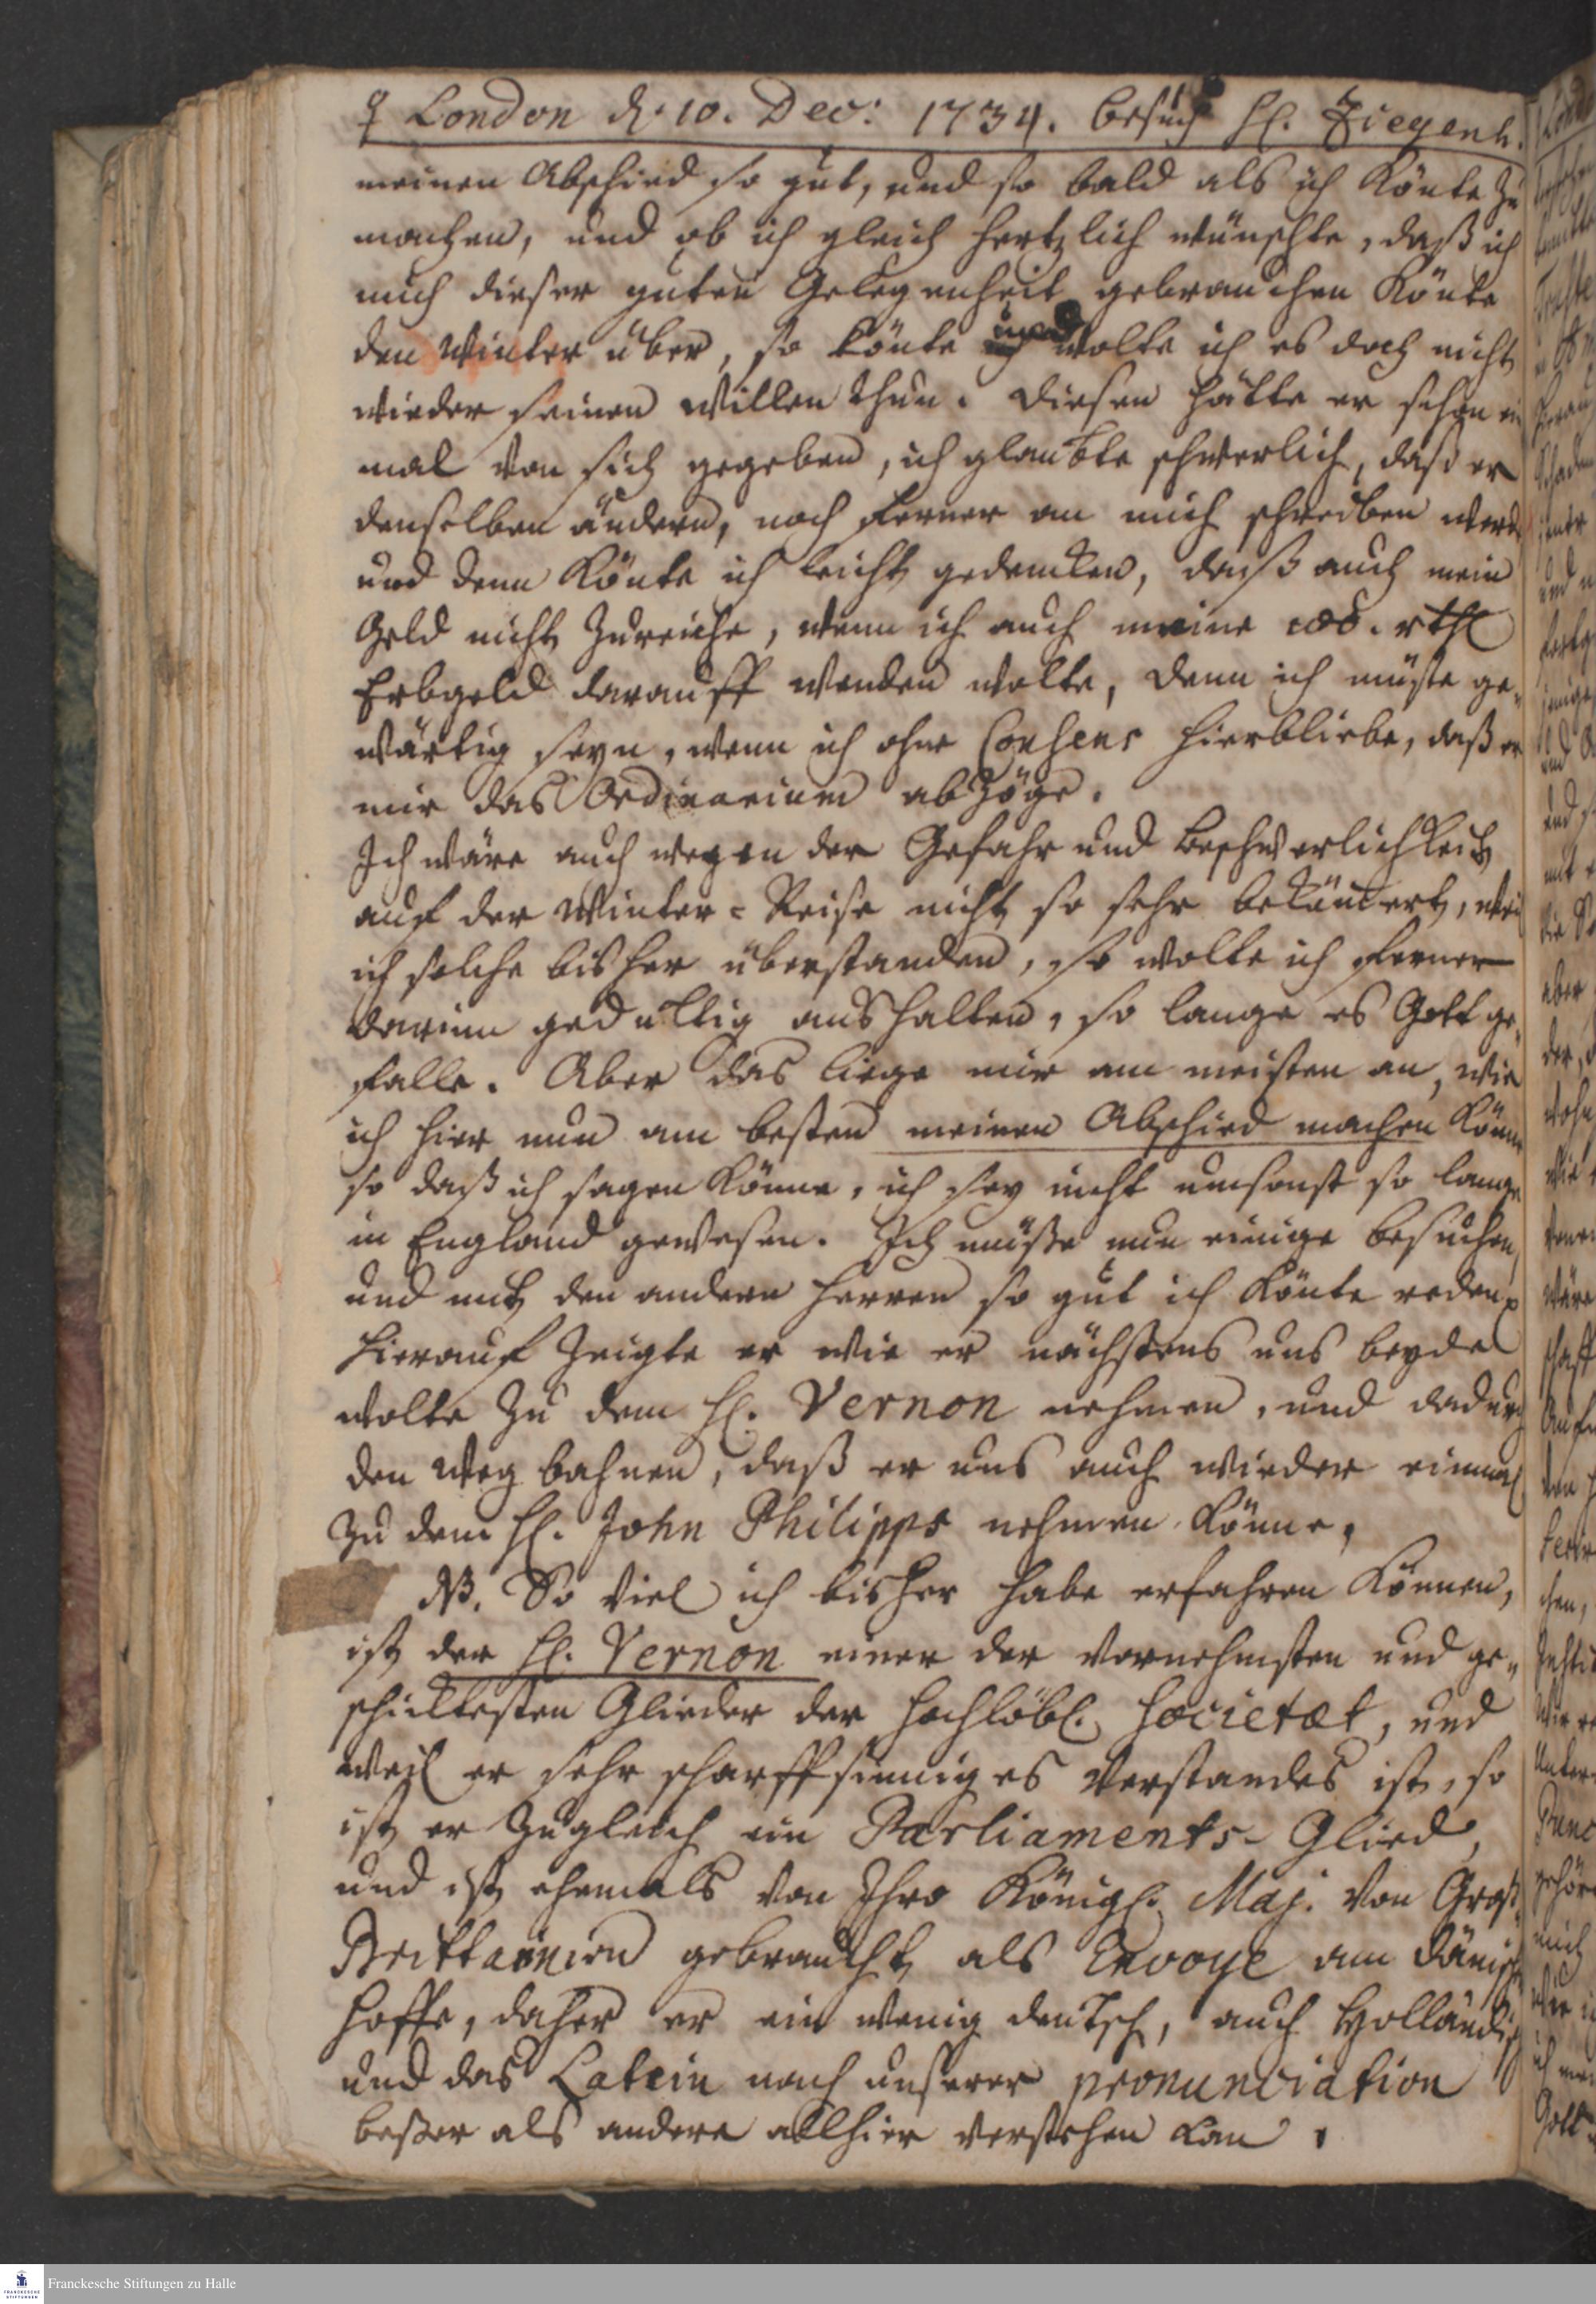 ♀ London d. 10. Dec: 1734. Besuch H. Ziegenh.
meinen Abschied so gut, und so bald als ich könte zu
machen, und ob ich gleich hertzlich wünschte, daß ich
mich dieser guten Gelegenheit gebrauchen könte
den Winter über, so könte und wolte ich es doch nicht
wieder seinen Willen thun. Diesen hätte er schon ein
mal von sich gegeben, ich glaubte schwerlich, daß er
denselben ändern, noch ferner an mich schreiben werde
und denn könte ich leicht gedencken, daß auch mein
Geld nicht zureiche, wenn ich auch meine 100. rthl
Erbgeld darauff wenden wolte, denn ich müste ge-
wärtig seyn, wenn ich ohne Consens hierbliebe, daß er
mir das Ordinarium abzöge.
Ich wäre auch wegen der Gefahr und Beschwerlichkeit
auf der Winter-Reise nicht so sehr bekümert, weil
ich solche bisher überstanden, so wolte ich ferner
darinn gedultig aushalten, so lange es Gott ge-
falle. Aber das liege mir am meisten an, wie
ich hier nun am besten meinen Abschied machen könne
so daß ich sagen könne, ich sey nicht umsonst so lange
in England gewesen. Ich müste nun einige besuchen,
und mit den andern Herren so gut ich könte reden.
Hierauf zeigte er wie er nächstens uns beyde
wolte zu dem H. Vernon nehmen, und dadurch
den Weg bahnen, daß er uns auch wieder einmal
zu dem H. John Philipps nehmen könne.
NB. So viel ich bisher habe erfahren können,
ist der H. Vernon einer der vornehmsten und ge-
schicktesten Glieder der Hochlöbl. Societæt, und
weil er sehr scharffsinniges Verstandes ist, so
ist er zugleich ein Parliaments-Glied,
und ist ehemals von Ihro Königl. Maj. von Groß-
Brittannien gebraucht als Envoye am Dänisch
Hoffe, daher er ein wenig deutsch, auch Holländisch
und das Latein nach unserer pronunciation
beßer als andere allhier verstehen kan.
Franckesche Stiftungen zu Halle